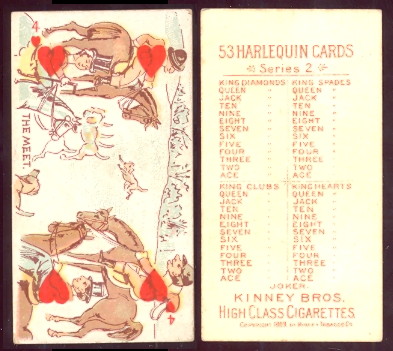 4
THE MEET
4
53 HARLEQUIN CARDS
Series 2
KING DIAMONDS KING SPADES
QUEEN " QUEEN "
JACK " JACK "
TEN " TEN "
NINE " NINE "
EIGHT " EIGHT "
SEVEN " SEVEN "
SIX " SIX "
FIVE " FIVE "
FOUR " FOUR "
THREE " THREE "
TWO " TWO "
ACE " ACE "
KING CLUBS KING HEARTS
QUEEN " QUEEN "
JACK " JACK "
TEN " TEN "
NINE " NINE "
EIGHT " EIGHT "
SEVEN " SEVEN "
SIX " SIX "
FIVE " FIVE "
FOUR " FOUR "
THREE " THREE "
TWO " TWO "
ACE " ACE "
JOKER.
KINNEY BROS.
HIGH CLASS CIGARETTES.
COPYRIGHT 1889, BY KINNEY TOBACCO CO.